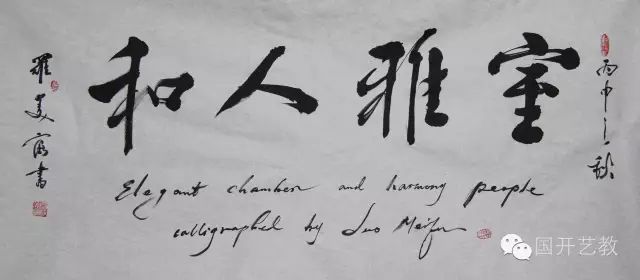 丙申之秋
室雅人和
羅美富書
Elegant chamber and harmony people
calligraphed by Luo Meifu
国开艺教